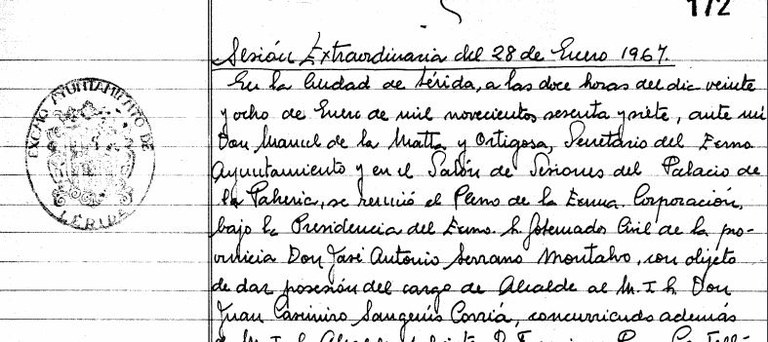 172
Sesión Extraordinaria del 28 de Enero 1967.
En la Ciudad de Lérida, a las doce horas del dia veinte
y ocho de Enero de mil novecientos sesenta y siete, ante mi
Don Manuel de la Matta y Ortigosa, Secretario del Excmo
Ayuntamiento y en el Salón de Sesiones del Palacio de
la Paheria, se reunió el Pleno de la Excma. Corporación,
bajo la Presidencia del Excmo. Sr. Gobernador Civil de la pro-
vincia Don José Antonio Serrano Montalvo, con objeto
de dar posesión del cargo de Alcalde al M. I. Sr. Don
Juan Casimiro Sangenís Corriá, concurriendo además
EXCMO AYUNTAMIENTO DE
LERIDA